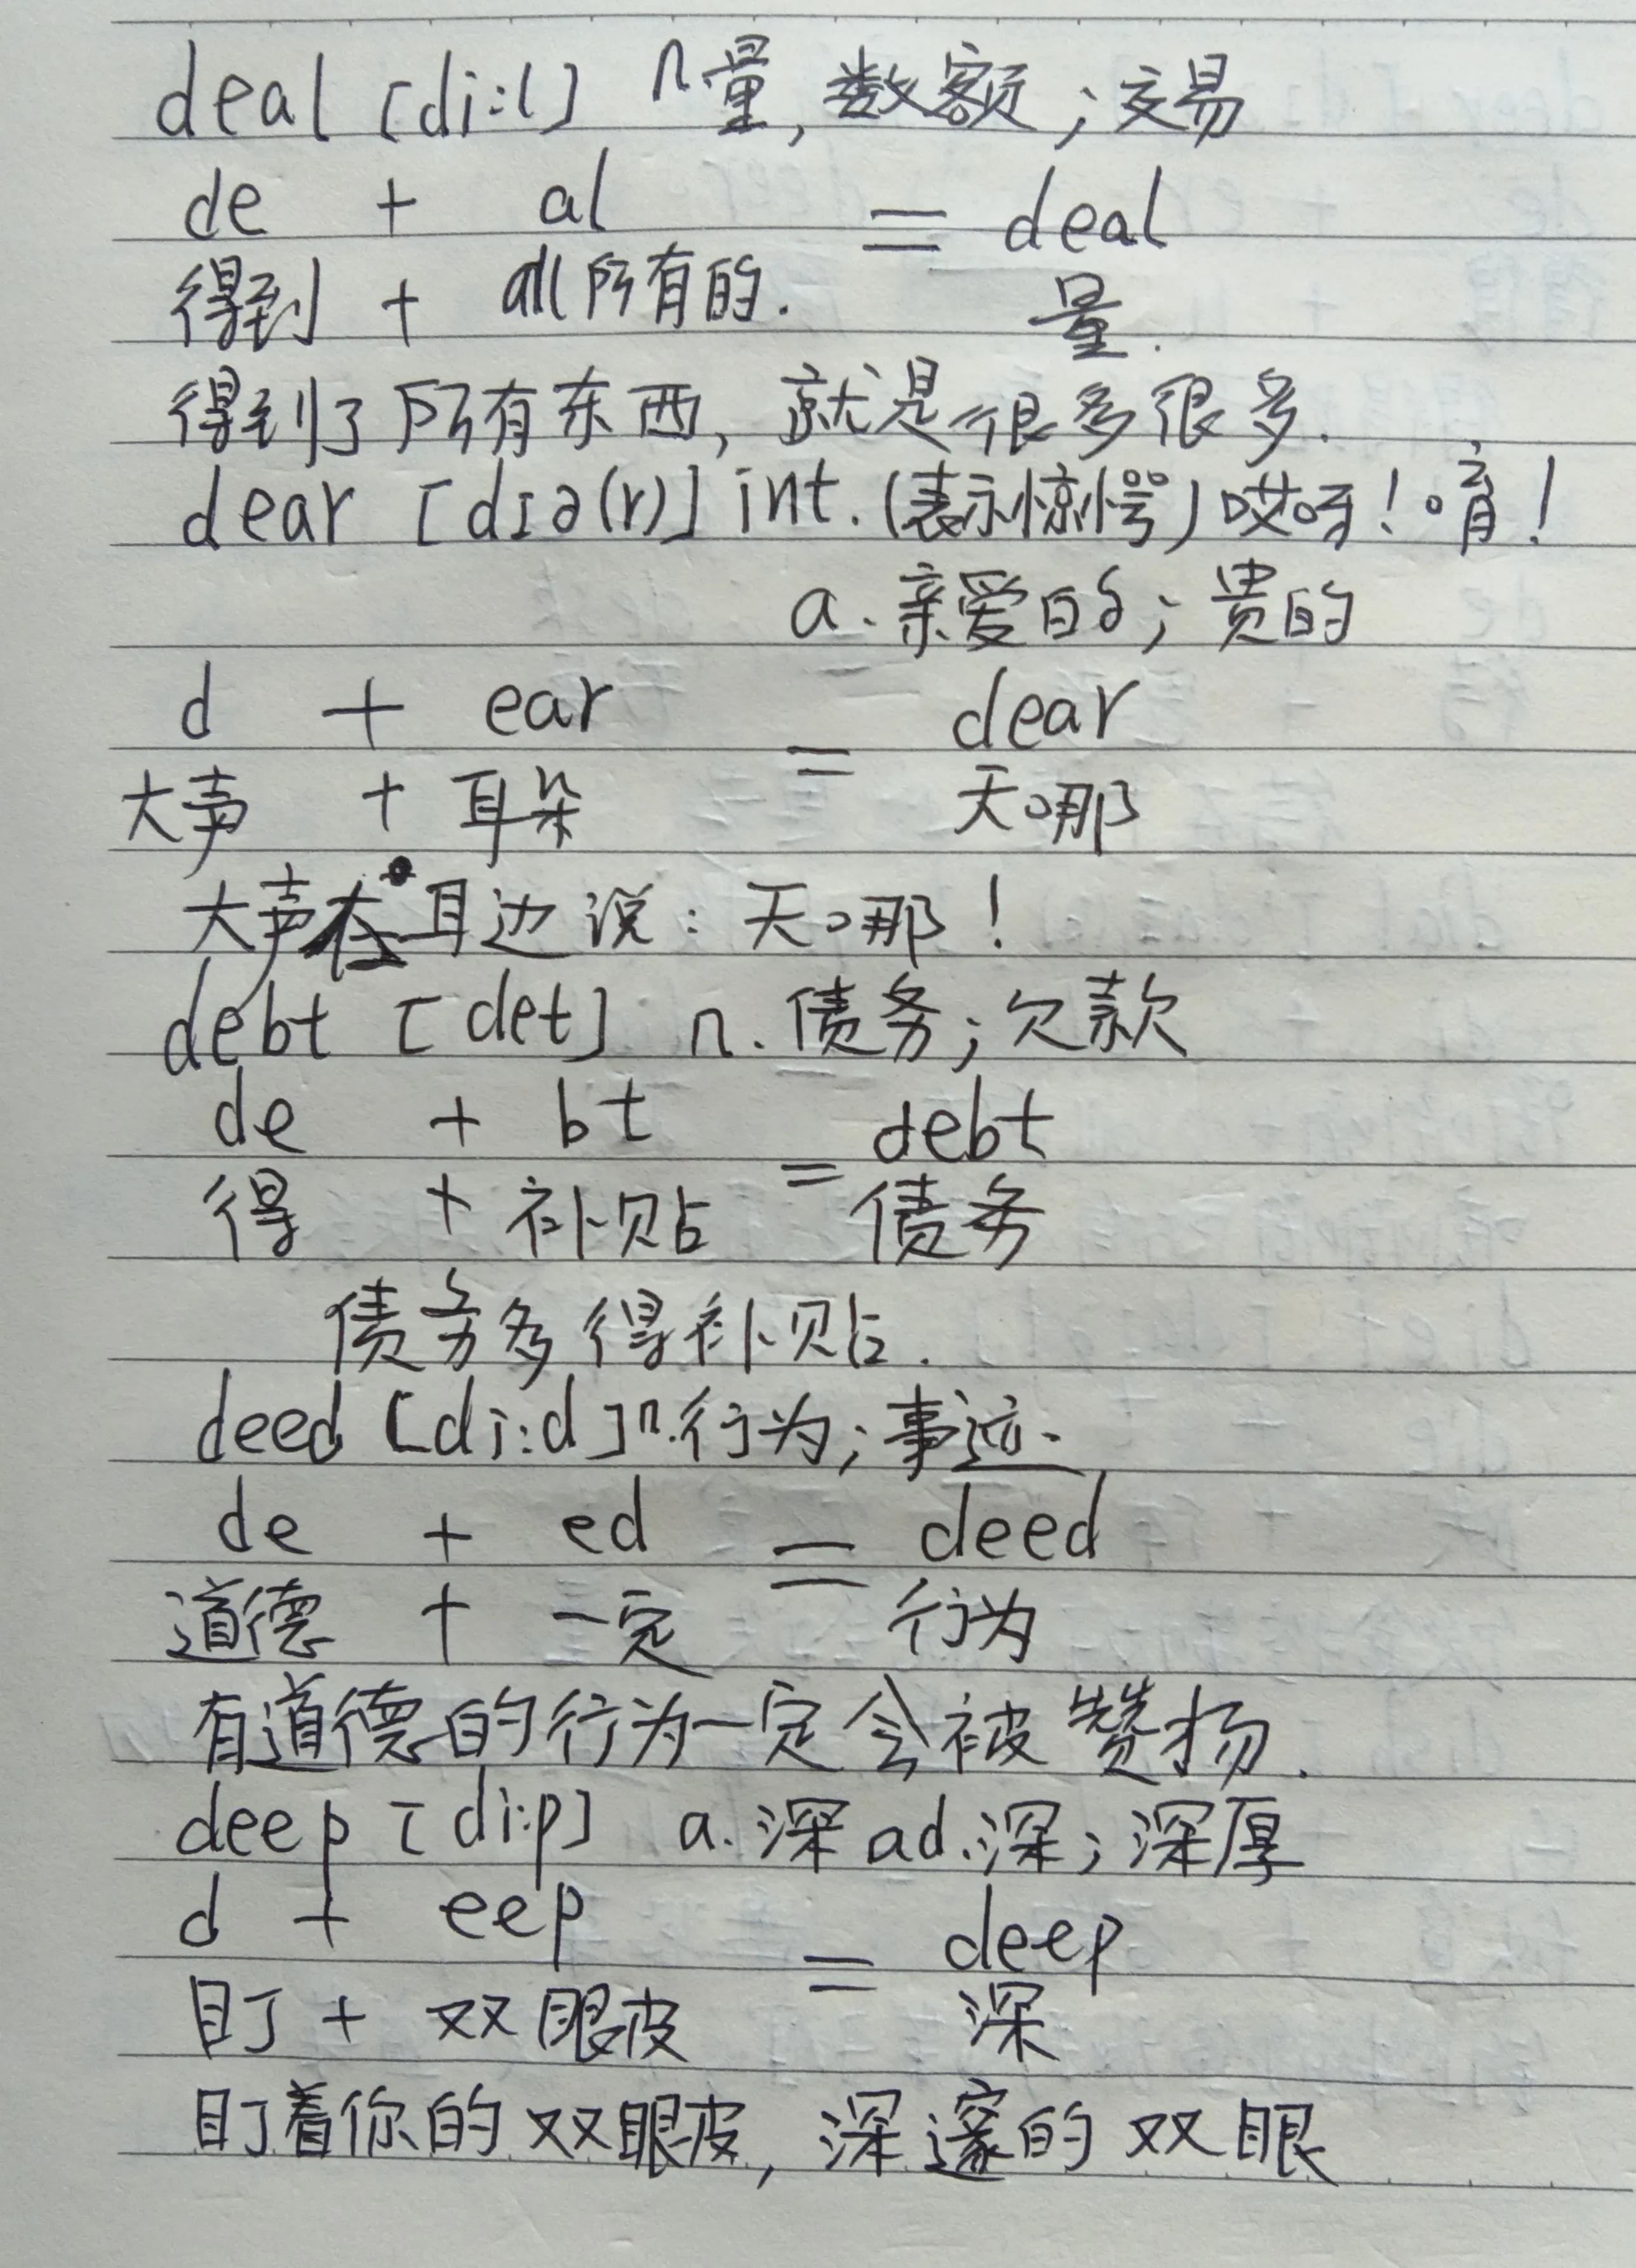 deal [di:l] n.量,数额;交易
de + al = deal
得到 + all所有的. 量.
得到了所有东西,就是很多很多.
dear [dɪə(r)] int.(表示惊愕)哎呀!唷!
a.亲爱的;贵的
d + ear = dear
大声 + 耳朵 天哪
大声在耳边说:天哪!
debt [det] n.债务;欠款
de + bt = debt
得 + 补贴 债务
债务多得补贴.
deed [di:d] n.行为;事迹.
de + ed = deed
道德 + 一定 行为
有道德的行为一定会被赞扬.
deep [di:p] a.深 ad.深;深厚
d + eep = deep
盯 + 双眼皮 深
盯着你的双眼皮,深邃的双眼